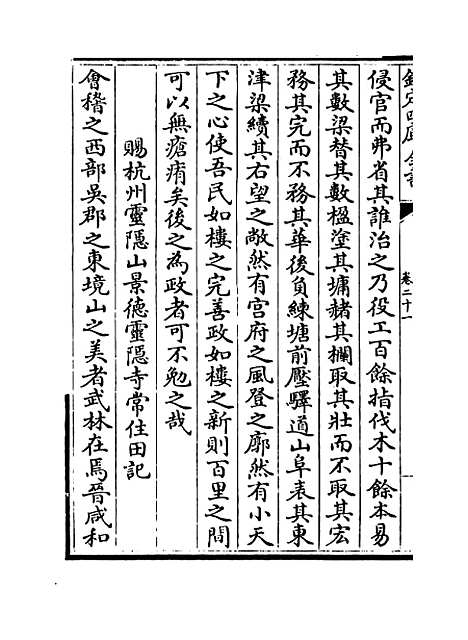 欽定四庫全書
卷二十一
侵官而弗省其誰治之乃役工百餘指伐木十餘本易
其數梁替其數楹塗其墉赭其欄取其壯而不取其宏
務其完而不務其華後負練塘前壓驛道山阜表其東
津梁續其右望之敞然有宫府之風登之廓然有小天
下之心使吾民如樓之完善政如樓之新則百里之間
可以無瘡痏矣後之為政者可不勉之哉
賜杭州靈隱山景德靈隱寺常住田記
會稽之西部吳郡之東境山之美者武林在焉晉咸和